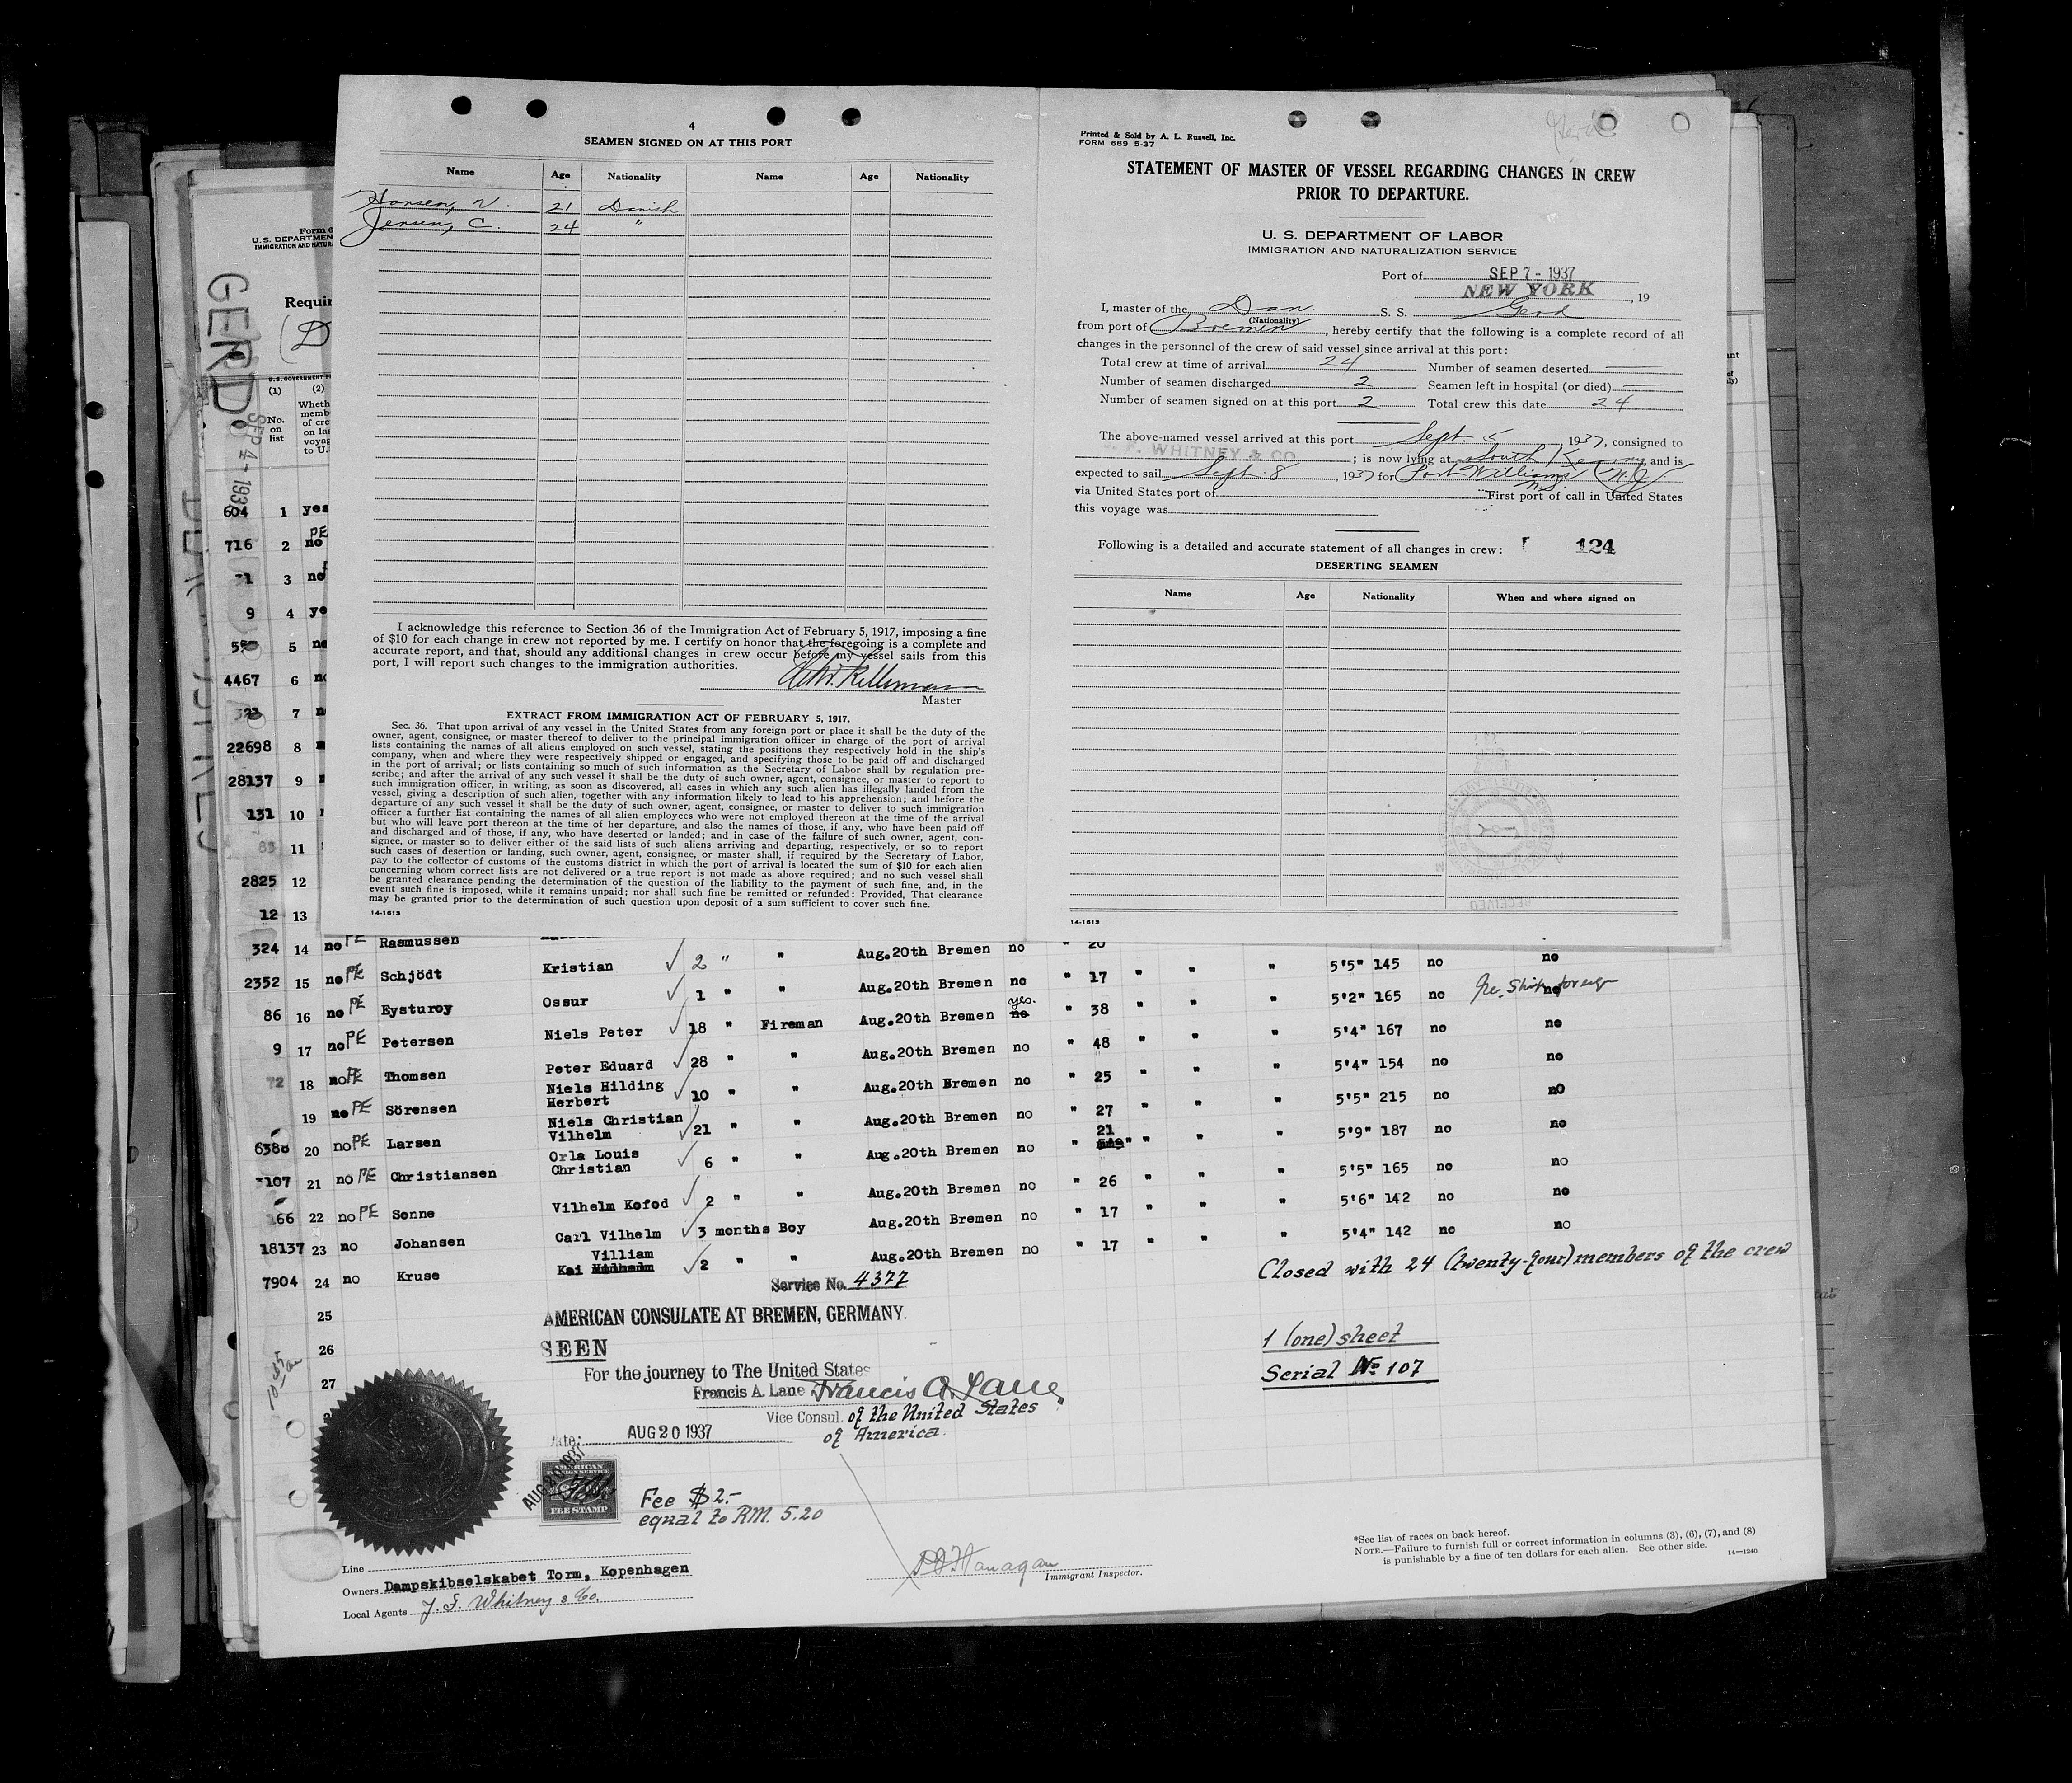 4
SEAMEN SIGNED ON AT THIS PORT
Name Age Nationality Name Age Nationality
Hansen, V. 21 Danish
Jensen, C. 24 "
I acknowledge this reference to Section 36 of the Immigration Act of February 5, 1917, imposing a fine
of $10 for each change in crew not reported by me. I certify on honor that the foregoing is a complete and
accurate report, and that, should any additional changes in crew occur before my vessel sails from this
port, I will report such changes to the immigration authorities.
Master
EXTRACT FROM IMMIGRATION ACT OF FEBRUARY 5, 1917.
Sec. 36. That upon arrival of any vessel in the United States from any foreign port or place it shall be the duty of the
owner, agent, consignee, or master thereof to deliver to the principal immigration officer in charge of the port of arrival
lists containing the names of all aliens employed on such vessel, stating the positions they respectively hold in the ship's
company, when and where they were respectively shipped or engaged, and specifying those to be paid off and discharged
in the port of arrival; or lists containing so much of such information as the Secretary of Labor shall by regulation pre-
scribe; and after the arrival of any such vessel it shall be the duty of such owner, agent, consignee, or master to report to
such immigration officer, in writing, as soon as discovered, all cases in which any such alien has illegally landed from the
vessel, giving a description of such alien, together with any information likely to lead to his apprehension; and before the
departure of any such vessel it shall be the duty of such owner, agent, consignee, or master to deliver to such immigration
officer a further list containing the names of all alien employees who were not employed thereon at the time of the arrival
but who will leave port thereon at the time of her departure, and also the names of those, if any, who have been paid off
and discharged and of those, if any, who have deserted or landed; and in case of the failure of such owner, agent, con-
signee, or master so to deliver either of the said lists of such aliens arriving and departing, respectively, or so to report
such cases of desertion or landing, such owner, agent, consignee, or master shall, if required by the Secretary of Labor,
pay to the collector of customs of the customs district in which the port of arrival is located the sum of $10 for each alien
concerning whom correct lists are not delivered or a true report is not made as above required; and no such vessel shall
be granted clearance pending the determination of the question of the liability to the payment of such fine, and, in the
event such fine is imposed, while it remains unpaid; nor shall such fine be remitted or refunded: Provided, That clearance
may be granted prior to the determination of such question upon deposit of a sum sufficient to cover such fine.
14-1613
Printed & Sold by A. L. Russell, Inc.
FORM 689 5-37
STATEMENT OF MASTER OF VESSEL REGARDING CHANGES IN CREW
PRIOR TO DEPARTURE.
U. S. DEPARTMENT OF LABOR
IMMIGRATION AND NATURALIZATION SERVICE
Port of SEP 7 - 1937
NEW YORK, 19
I, master of the Dan. S. S. Gerd
(Nationality)
from port of Bremen, hereby certify that the following is a complete record of all
changes in the personnel of the crew of said vessel since arrival at this port:
Total crew at time of arrival 24 Number of seamen deserted
Number of seamen discharged 2 Seamen left in hospital (or died)
Number of seamen signed on at this port 2 Total crew this date 24
The above-named vessel arrived at this port Sept. 5, 1937, consigned to
F. WHITNEY & CO; is now lying at South Kearny and is
expected to sail Sept. 8, 1937 for Port Williams (N.J.)
N.S.
via United States port of First port of call in United States
this voyage was
Following is a detailed and accurate statement of all changes in crew: 124
DESERTING SEAMEN
Name Age Nationality When and where signed on
RECEIVED
14-1613
GERD
SEP 4-1937
Form 6
U. S. DEPARTMENT
IMMIGRATION AND NATURA
Requir
(D
U.S. GOVERNMENT P
(1) (2)
No. on list
Wheth
memb
of cre
on las
voyag
to U.
604 1 yes
716 2 no PE
71 3 no
9 4 ye
5 no
4467 6 no
323 7 n
22698 8
28137 9
131 10
83 11
2825 12
12 13
324 14 no PE Rasmussen Aug.20th Bremen no " 20 no
2352 15 no PE Schjödt Kristian 2 " " Aug.20th Bremen no " 17 " " " 5'5" 145 no no
86 16 no PE Eysturoy Ossur 1 " " Aug.20th Bremen yes. no " 38 " " " 5'2" 165 no
9 17 no PE Petersen Niels Peter 18 " Fireman Aug.20th Bremen no " 48 " " " 5'4" 167 no no
72 18 no PE Thomsen Peter Eduard 28 " " Aug.20th Bremen no " 25 " " " 5'4" 154 no no
19 no PE Sörensen Niels Hilding Herbert 10 " " Aug.20th Bremen no " 27 " " " 5'5" 215 no no
6388 20 no PE Larsen Niels Christian Vilhelm 21 " " Aug.20th Bremen no " 21 " " " 5'9" 187 no no
3107 21 no PE Christiansen Orla Louis Christian 6 " " Aug.20th Bremen no " 26 " " " 5'5" 165 no no
166 22 no PE Sonne Vilhelm Kofod 2 " " Aug.20th Bremen no " 17 " " " 5'6" 142 no no
18137 23 no Johansen Carl Vilhelm 3 months Boy Aug.20th Bremen no " 17 " " " 5'4" 142 no no
7904 24 no Kruse Kai Villiam 2 " "
Service No. 4377
Closed with 24 (twenty-four) members of the crew
25
AMERICAN CONSULATE AT BREMEN, GERMANY.
26
SEEN
1 (one) sheet
27
For the journey to The United States
Serial No 107
Francis A. Lane Francis A. Lane
Vice Consul. of the United States
of America.
Date: AUG 20 1937
AUG 20 1937
AMERICAN
FOREIGN SERVICE
FEE STAMP
Fee $2.-
equal to RM. 5.20
Line
Owners Dampskibselskabet Torm, Kopenhagen
Local Agents J. F. Whitney & Co.
Immigrant Inspector.
*See list of races on back hereof.
NOTE.—Failure to furnish full or correct information in columns (3), (6), (7), and (8)
is punishable by a fine of ten dollars for each alien. See other side.
14—1240